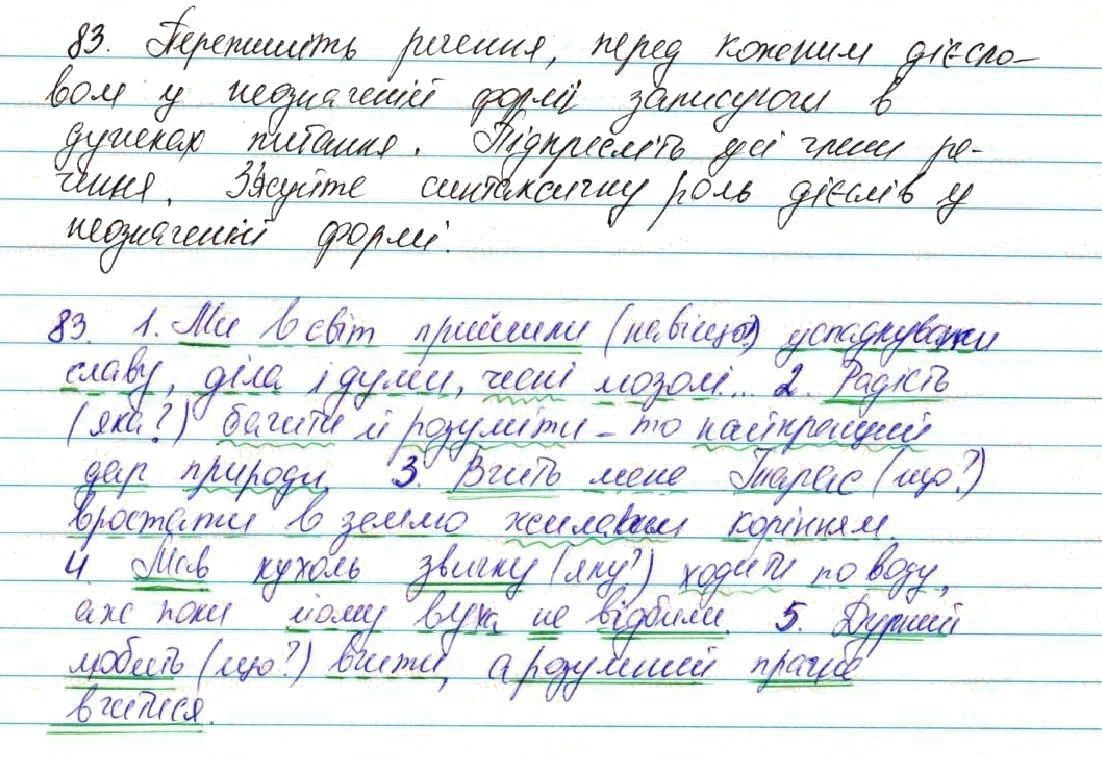 83. Перепишіть речення, перед кожним дієсло-
вом у неозначеній формі записуючи в
дужках питання. Підкресліть усі члени ре-
чення. З'ясуйте синтаксичну роль дієслів у
неозначеній формі.
83. 1. Ми в світ прийшли (навіщо?) успадкувати
славу, діла і думи, чесні мозолі... 2. Радість
(яка?) бачити й розуміти - то найкращий
дар природи. 3. Вчить мене Тарас (що?)
вростати в землю жилавим корінням.
4. Мав кухоль звичку (яку?) ходити по воду,
аж поки йому вуха не відбили. 5. Дурний
любить (що?) вчити, а розумний прагне
вчитися.